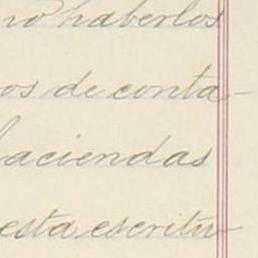 no haberlos
os de conta-
haciendas
esta escritu